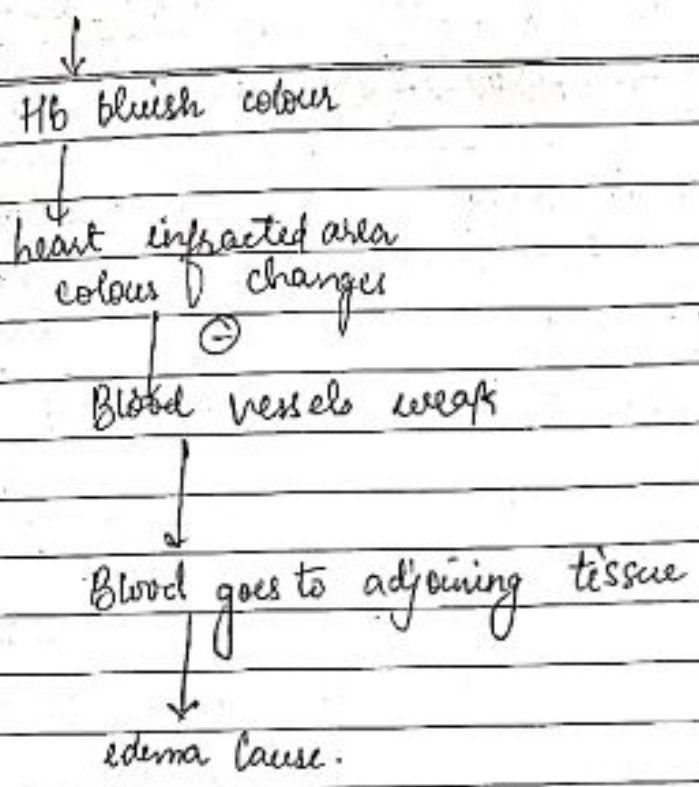 ↓
Hb bluish colour
↓
heart infracted area
colour changes
⊖
Blood vessels weak
↓
Blood goes to adjoining tissue
↓
edema Cause.